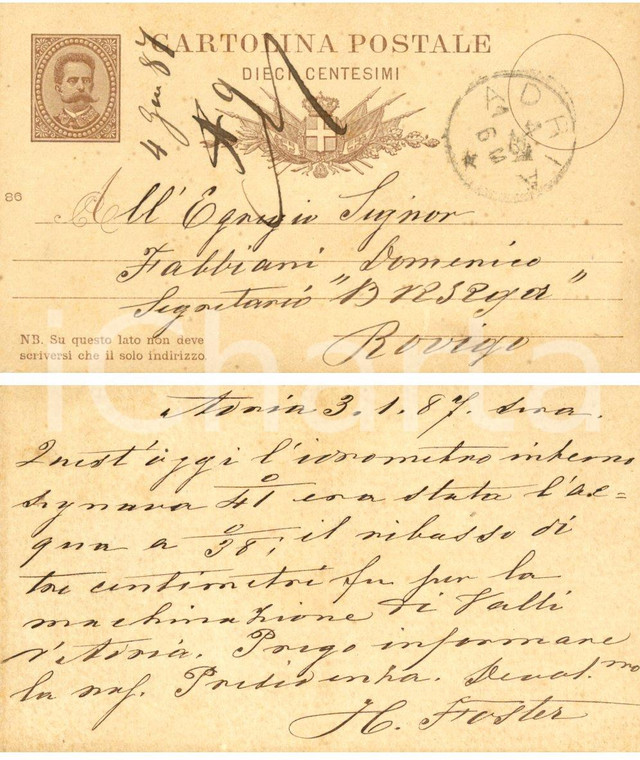 CARTOLINA POSTALE
DIECI CENTESIMI
4 Gen 87
ADRIA
86
All' Egregio Signor
Fabbiani Domenico
Segretario "
Rovigo
NB. Su questo lato non deve
scriversi che il solo indirizzo
iCharta
Adria 3.1.87. sera.
Quest'oggi l'idrometro interno
segnava 0/41 era stata l'ac=
qua a 0/38; il ribasso di
tre centimetri fu per la
machinazione di Valli
d'Adria. Prego informare
la Presidenza. Devot.mo
H. Foster